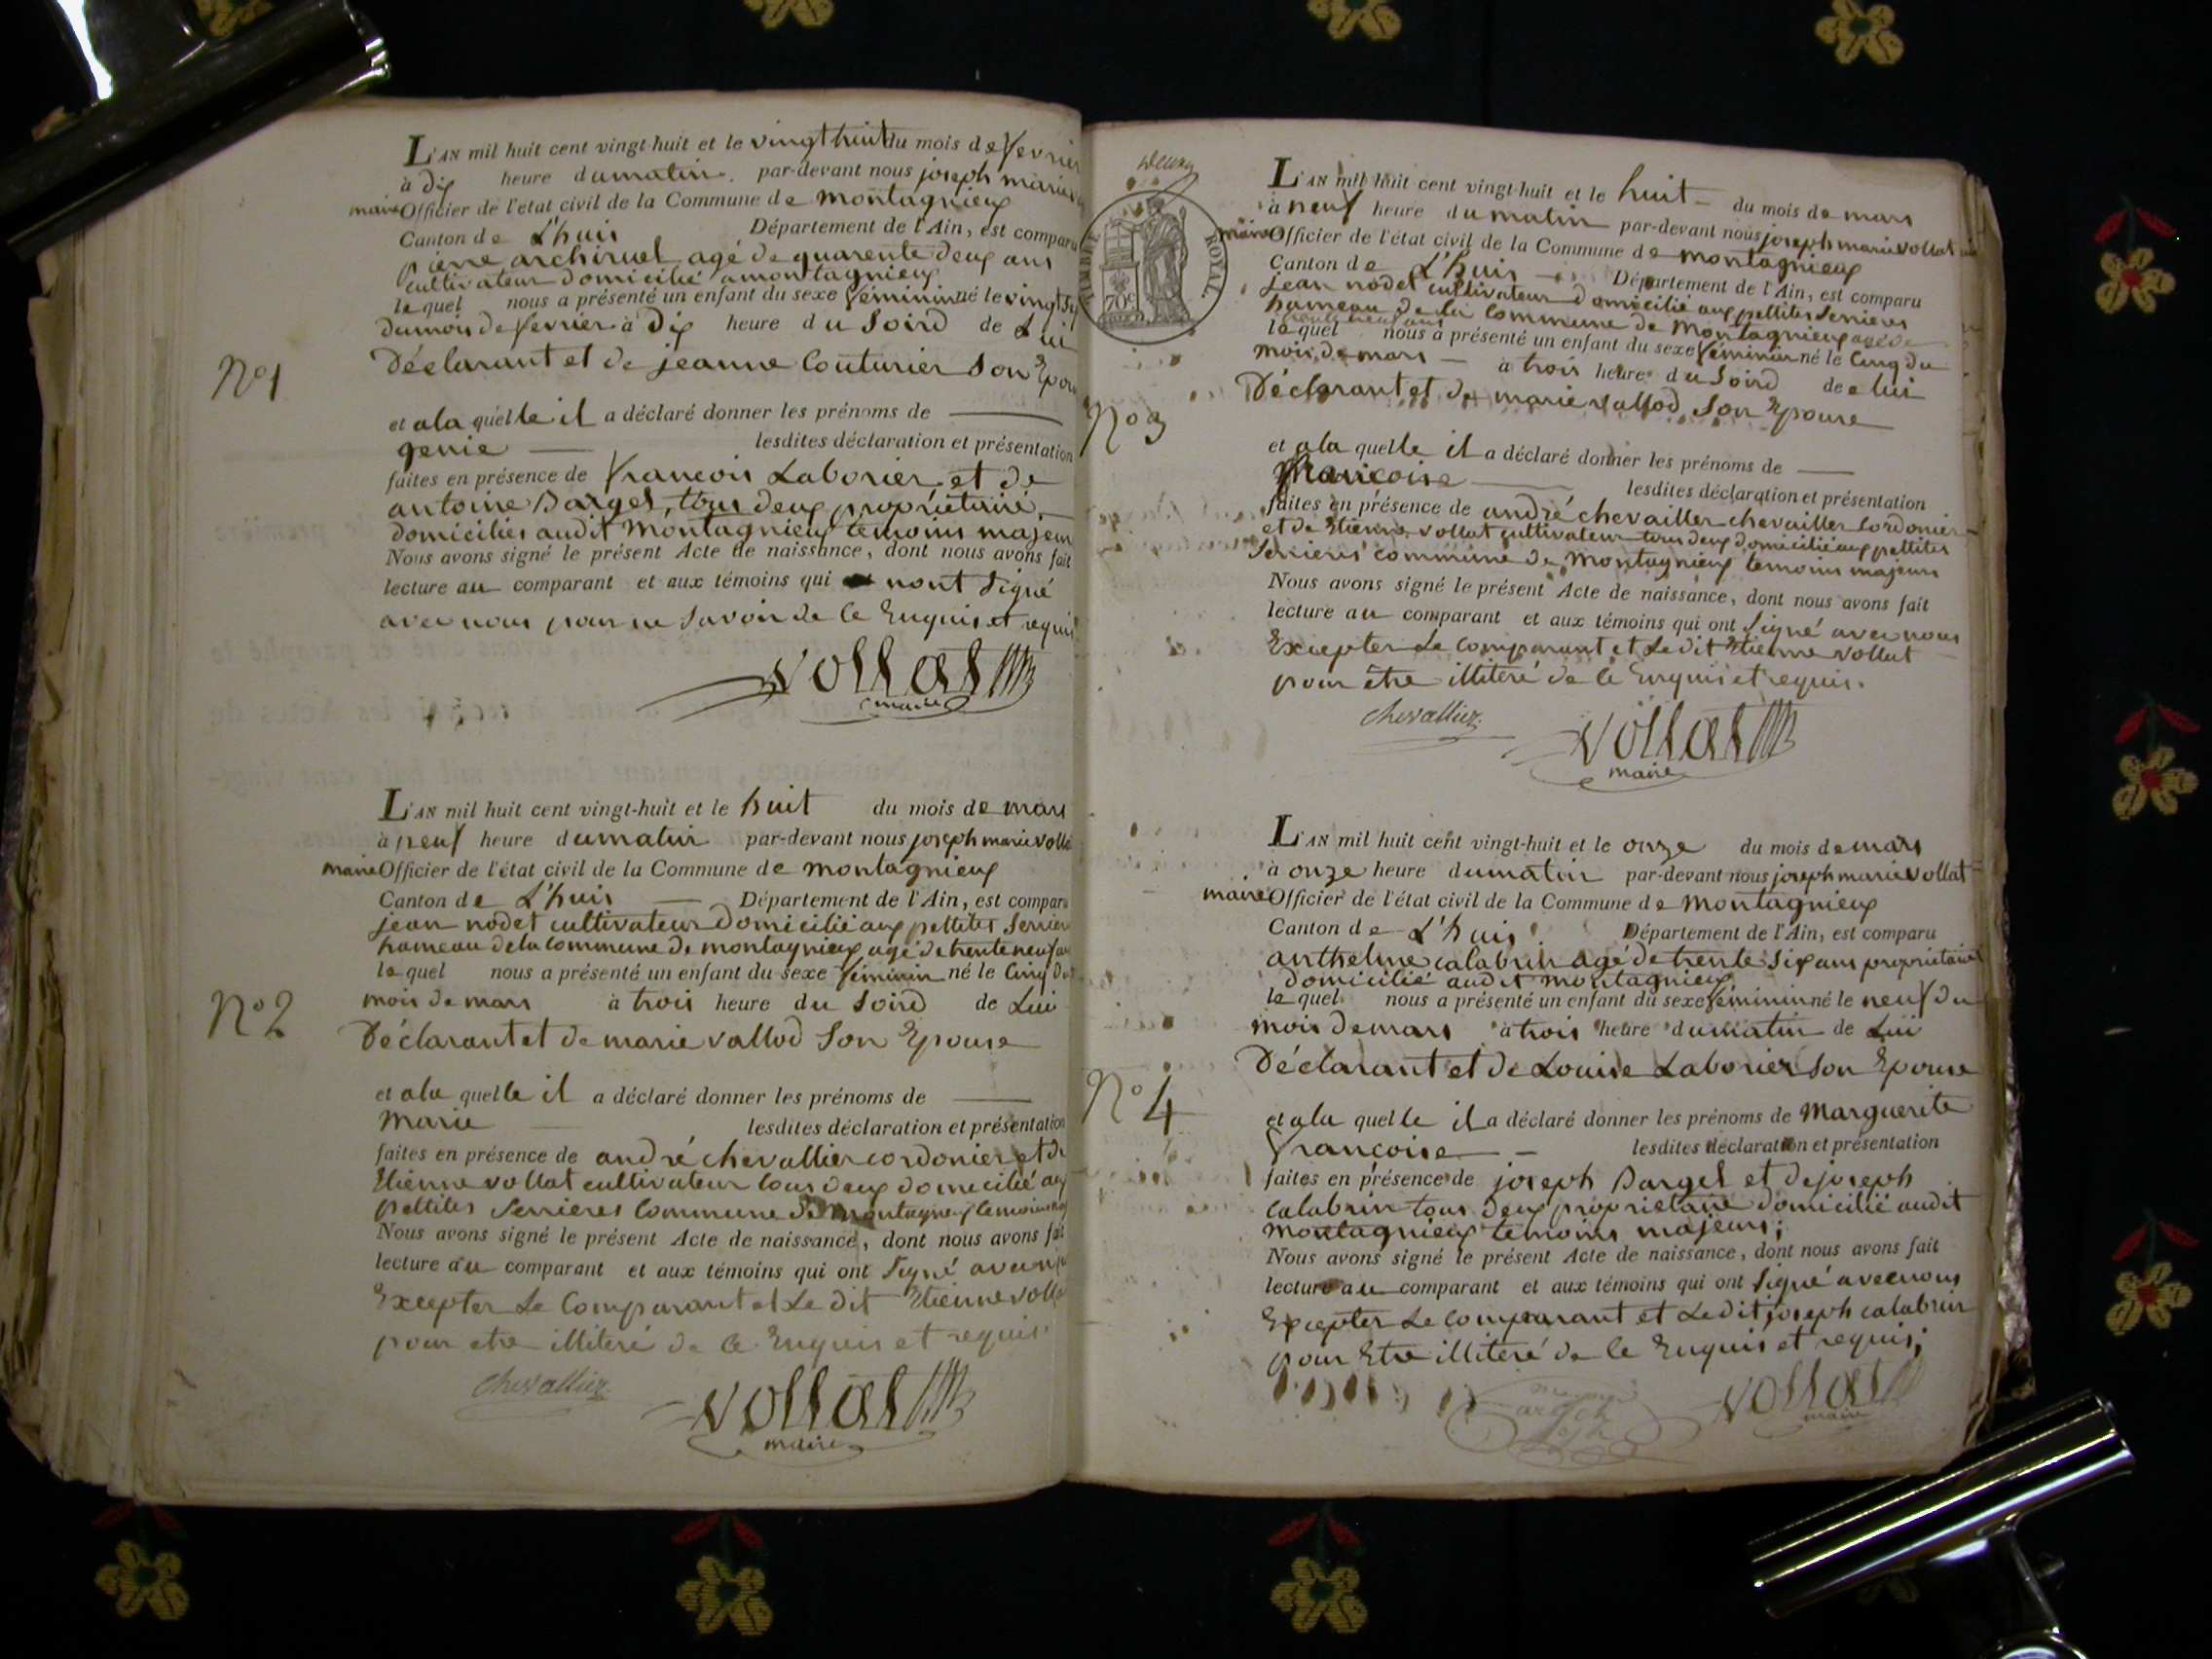 L'AN mil huit cent vingt-huit et le vingt huit du mois de fevrier
à dix heure du matin par-devant nous joseph marie
maire Officier de l'etat civil de la Commune de montagnieux
Canton de L'huis Département de l'Ain, est comparu
pierre archiruel agé de quarente deux ans
cultivateur domicilié a montagnieux
le quel nous a présenté un enfant du sexe féminin né le vingt
du mois de fevrier à Dix heure du Soird de Lui
N°1
Déclarant et de jeanne Couturier Son
et a la quelle il a déclaré donner les prénoms de
genie lesdites déclaration et présentation
faites en présence de francois Laborier et de
antoine Darget, tous deux propriétaire
domiciliés audit Montagnieux temoins majeur
Nous avons signé le présent Acte de naissance, dont nous avons fait
lecture au comparant et aux témoins qui nont Signé
avec nous pour ne Savoir de ce Enquis et requis
Vollat
maire
L'AN mil huit cent vingt-huit et le huit du mois de mars
à neuf heure du matin par-devant nous joseph marie volla
maire Officier de l'état civil de la Commune de montagnieux
Canton de L'huis Département de l'Ain, est comparu
jean nodet cultivateur Domicilié aux pettites Serrieres
hameau de la commune de montagnieux agé de trente neuf ans
le quel nous a présenté un enfant du sexe féminin né le Cinq Du
N°2
mois de mars à trois heure du Soird de Lui
Déclarant et de marie vallod Son Epouse
et a la quelle il a déclaré donner les prénoms de
Marie lesdites déclaration et présentation
faites en présence de andré chevallier cordonier et de
Etienne vollat cultivateur tous deux domicilié aux
pettites Serrieres Commune de Montagnieux temoins
Nous avons signé le présent Acte de naissance, dont nous avons fait
lecture au comparant et aux témoins qui ont Signé avec
Excepter Le Comparant et Le dit Etienne volla
pour etre illiteré de ce Enquis et requis
chevallier
Vollat
maire
TIMBRE ROYAL
70c
L'AN mil huit cent vingt-huit et le huit du mois de mars
à neuf heure du matin par-devant nous joseph marie vollat
maire Officier de l'état civil de la Commune de montagnieux
Canton de L'huis Département de l'Ain, est comparu
jean nodet cultivateur domicilié aux pettites Serrieres
hameau de la Commune de Montagnieux agé de
trente neuf ans
le quel nous a présenté un enfant du sexe féminin né le Cinq du
mois de mars à trois heure du Soird de lui
Déclarant et de marie vallod Son Epouse
N°3
et a la quelle il a déclaré donner les prénoms de
françoise lesdites déclaration et présentation
faites en présence de andré chevailler chevailler Cordonier
et de Etienne vollat cultivateur tous deux domicilié aux pettites
Serrieres commune de Montagnieux temoins majeurs
Nous avons signé le présent Acte de naissance, dont nous avons fait
lecture au comparant et aux témoins qui ont Signé avec nous
Excepter Le Comparant et Le dit Etienne vollat
pour être illiteré de ce Enquis et requis.
chevallier
Vollat
maire
L'AN mil huit cent vingt-huit et le onze du mois de mars
à onze heure du matin par-devant nous joseph marie vollat
maire Officier de l'état civil de la Commune de Montagnieux
Canton de L'huis Département de l'Ain, est comparu
anthelme calabrin agé de trente Six ans proprietaire
domicilié audit montagnieux
le quel nous a présenté un enfant du sexe féminin né le neuf du
mois de mars à trois heure du matin de Lui
Déclarant et de Louise Laborier Son Epouse
N°4
et a la quelle il a déclaré donner les prénoms de Marguerite
françoise lesdites déclaration et présentation
faites en présence de joseph Darget et de joseph
calabrin tous deux proprietaire domicilié audit
Montagnieux temoins majeurs;
Nous avons signé le présent Acte de naissance, dont nous avons fait
lecture au comparant et aux témoins qui ont Signé avec nous
Excepter Le comparant et Le dit joseph calabrin
pour Etre illiteré de ce Enquis et requis;
Vollat
maire